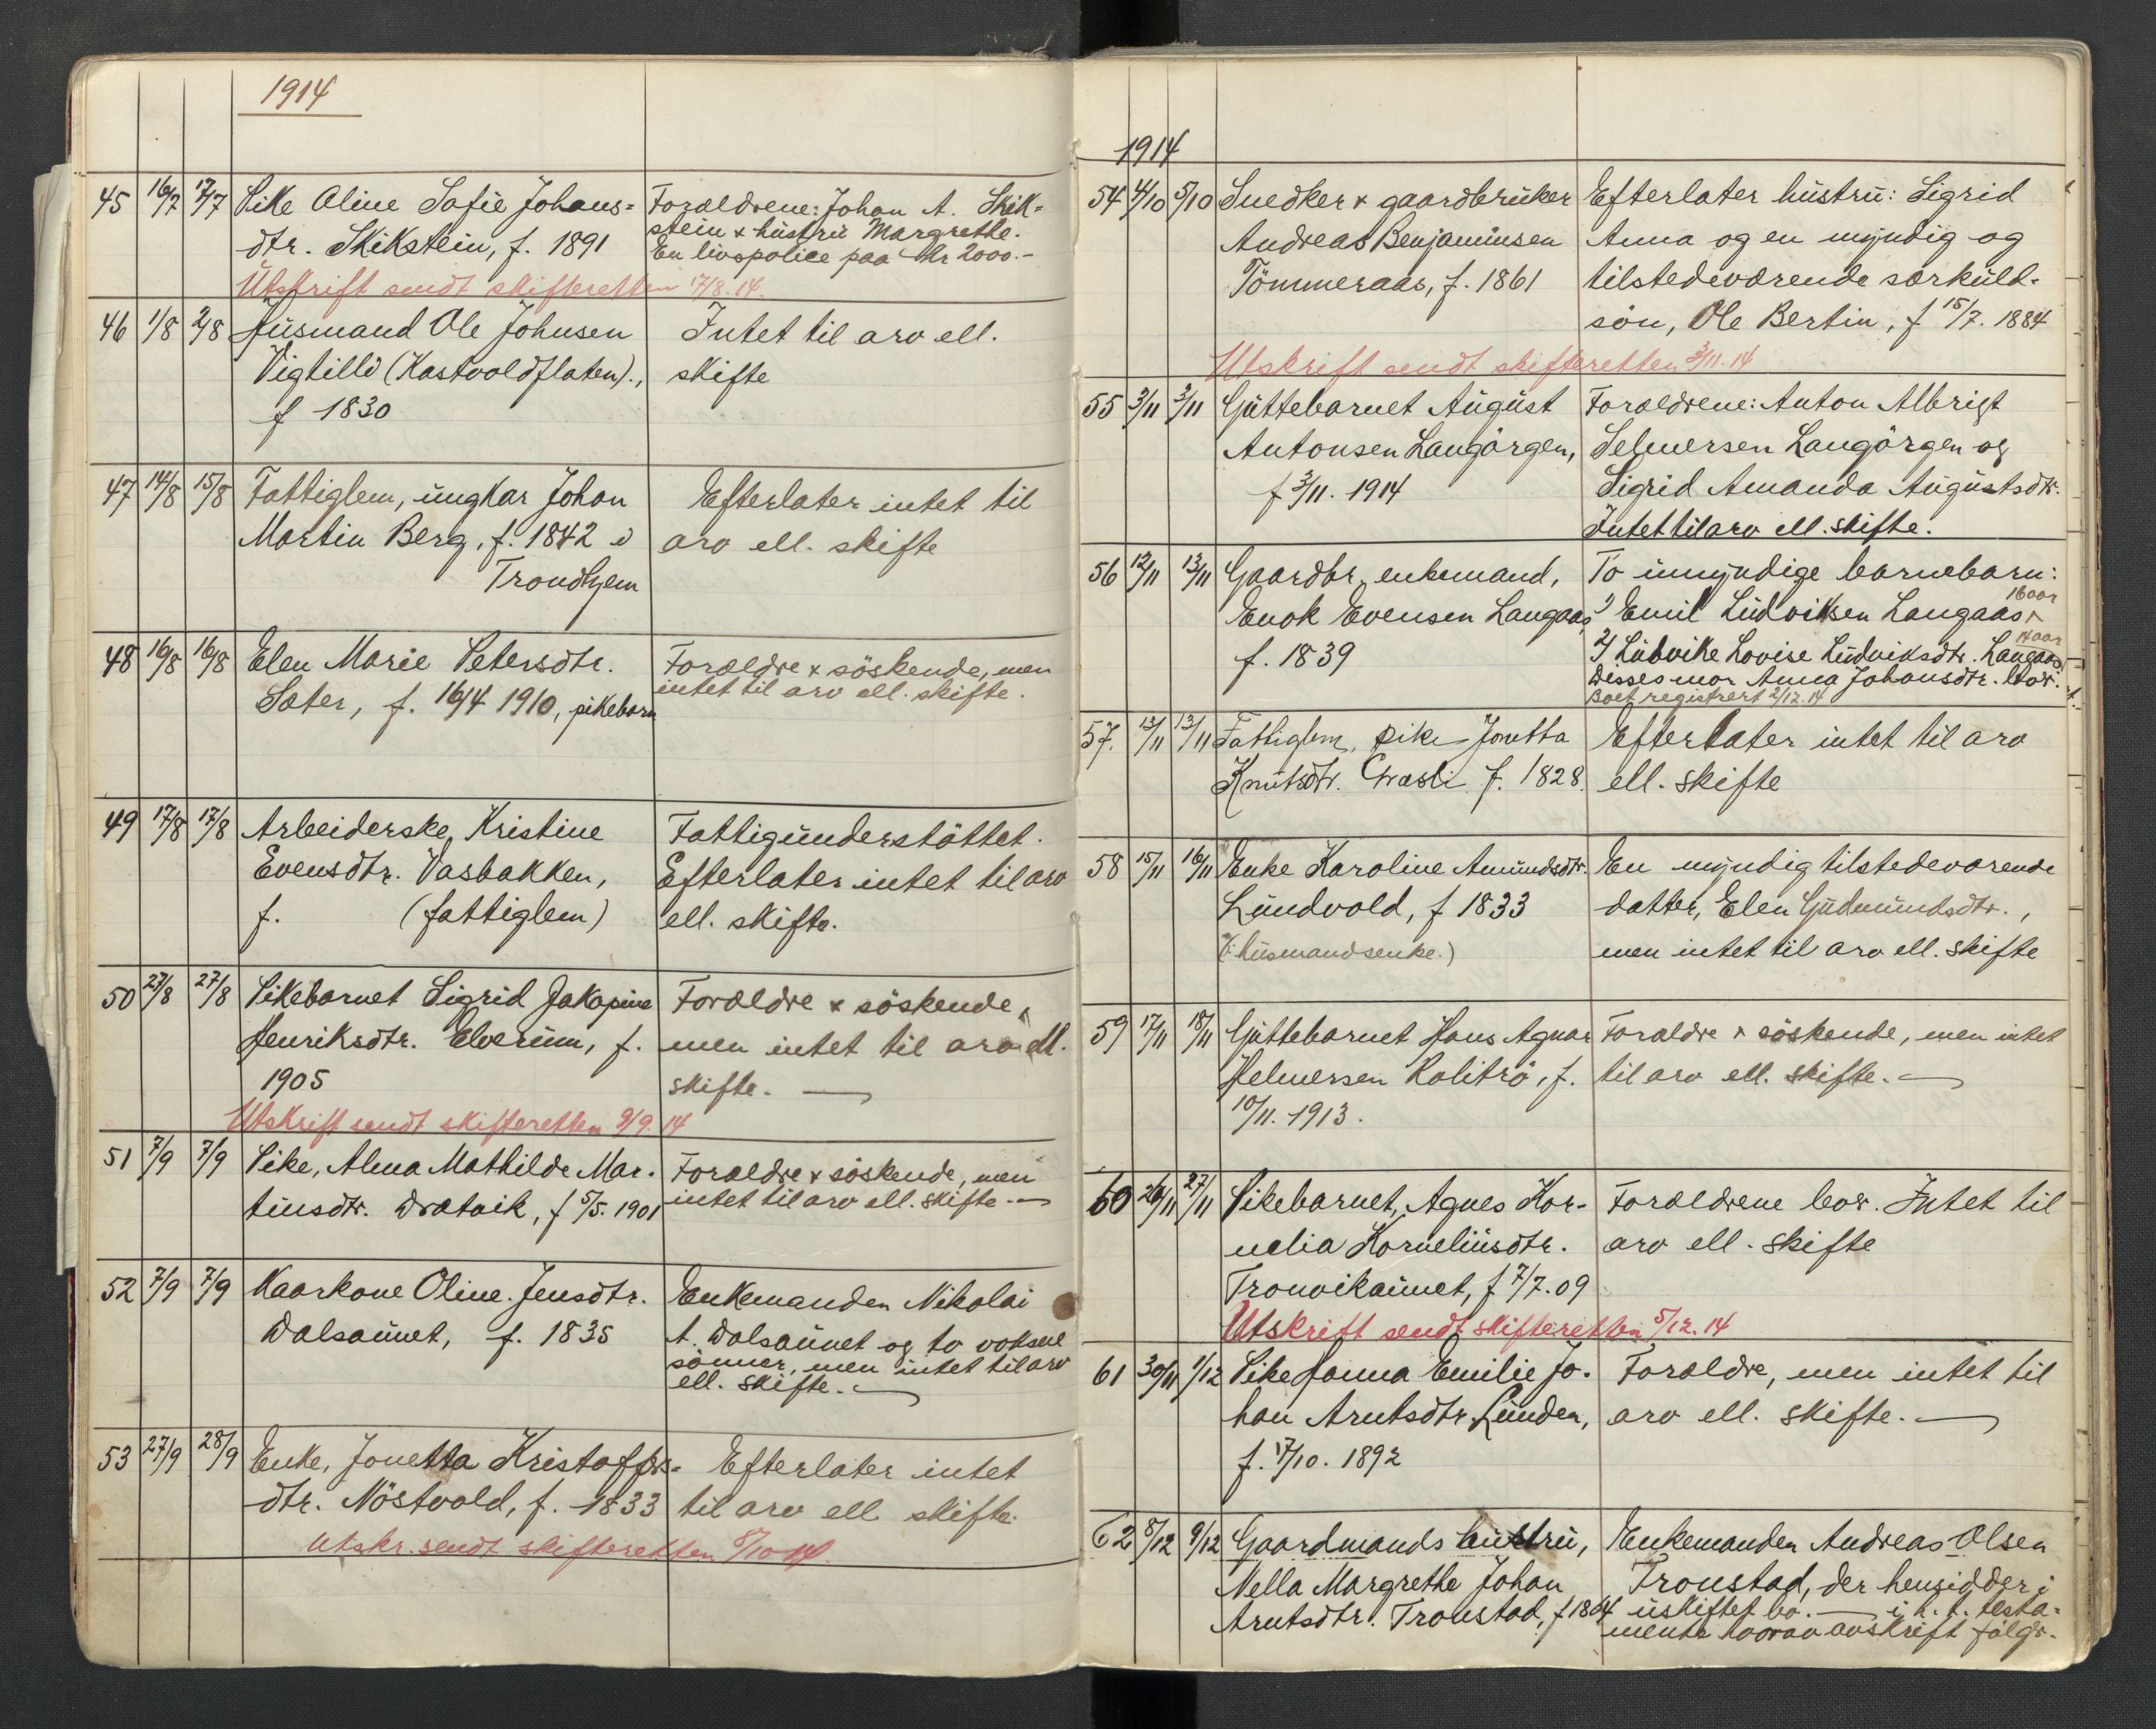 1914
45 16/7 17/7 Pike Aline Sofie Johans=
dtr. Skikstein, f. 1891
Forældrene: Johan A. Skik=
stein & hustru Margrethe.
En livspolice paa Kr 2000.-
Utskrift sendt skifteretten 17/8.14.
46 1/8 2/8 Husmand Ole Johnsen
Vigtillø (Kastvoldflaten).,
f 1830
Intet til arv ell.
skifte
47 14/8 15/8 Fattiglem, ungkar Johan
Martin Berg, f. 1842 i
Trondhjem
Efterlater intet til
arv ell. skifte
48 16/8 16/8 Elen Marie Petersdtr.
Sæter, f. 16/4 1910, pikebarn
Forældre & söskende, men
intet til arv ell. skifte.
49 17/8 17/8 Arbeiderske Kristine
Evensdtr. Vasbakken,
f. (fattiglem)
Fattigunderstöttet.
Efterlater intet til arv
ell. skifte.
50 27/8 27/8 Pikebarnet Sigrid Jakopine
Henriksdtr. Elverum, f.
1905
Forældre & söskende,
men intet til arv ell.
skifte. —
Utskrift sendt skifteretten 9/9. 14
51 7/9 7/9 Pike, Alma Mathilde Mar-
tinsdtr. Dratvik, f 5/5. 1901
Forældre & söskende, men
intet til arv ell. skifte. —
52 7/9 7/9 Kaarkone Oline Jensdtr.
Dalsaunet, f. 1835
Enkemanden Nikolai
A. Dalsaunet og to voksne
sönner, men intet til arv
ell. skifte. —
53 27/9 28/9 Enke, Jonetta Kristoffers-
dtr. Nöstvold, f. 1833
Efterlater intet
til arv ell skifte.
Utskr. sendt skifteretten 8/10 14.
1914
54 4/10 5/10 Snedker & gaardbruker
Andreas Benjaminsen
Tömmeraas, f. 1861
Efterlater hustru: Sigrid
Anna og en myndig og
tilstedeværende særkuld-
søn, Ole Bertin, f 15/7. 1884
Utskrift sendt skifteretten 3/11. 14
55 3/11 3/11 Guttebarnet August
Antonsen Langörgen,
f 3/11. 1914
Forældrene: Anton Albrigt
Selmersen Langörgen og
Sigrid Amanda Augustsdtr.
Intet til arv ell. skifte.
56 12/11 13/11 Gaardbr., enkemand,
Enok Evensen Langaas,
f. 1839
To umyndige barnebarn:
16 aar
1) Emil Ludviksen Langaas
14 aar
2) Ludvike Lovise Ludviksdtr. Langaas
Disses mor Anna Johansdtr. lever.
Boet registrert 2/12.14
57. 13/11 13/11 Fattiglem, pike Jonetta
Knutsdtr. f. 1828.
Efterlater intet til arv
ell. skifte
58 15/11 16/11 Enke Karoline Amundsdtr.
Lundvold, f 1833
(: husmandsenke.)
En myndig tilstedeværende
datter, Elen Gudmundsdtr.,
men intet til arv ell. skifte
59 17/11 18/11 Guttebarnet Hans Agnar
Helmersen Kolitrö, f.
10/11. 1913.
Forældre & söskende, men intet
til arv ell. skifte. —
60 26/11 27/11 Pikebarnet, Agnes Kor-
nelia Korneliusdtr.
Tronvikaunet, f 7/7. 09
Forældrene lever. Intet til
arv ell. skifte
Utskrift sendt skifteretten 5/12. 14
61 30/11 1/12 Pike Hanna Emilie Jo-
han Arntsdtr. Lunden,
f. 17/10. 1892
Forældre, men intet til
arv ell. skifte. —
62 8/12 9/12 Gaardmands hustru,
Nella Margrethe Johan
Arntsdtr. Tronstad, f 1864
Enkemanden Andreas Olsen
Tronstad, der hensidder i
uskiftet bo. — i h. t. testa-
mente hvorav avskrift fölger.